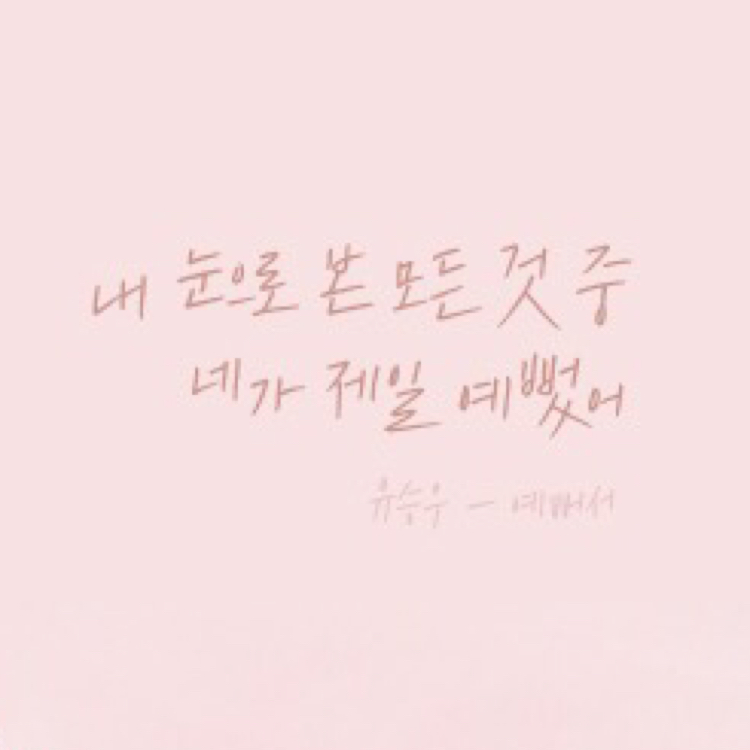 내 눈으로 본 모든 것 중
네가 제일 예뻤어
유승우 - 예뻐서